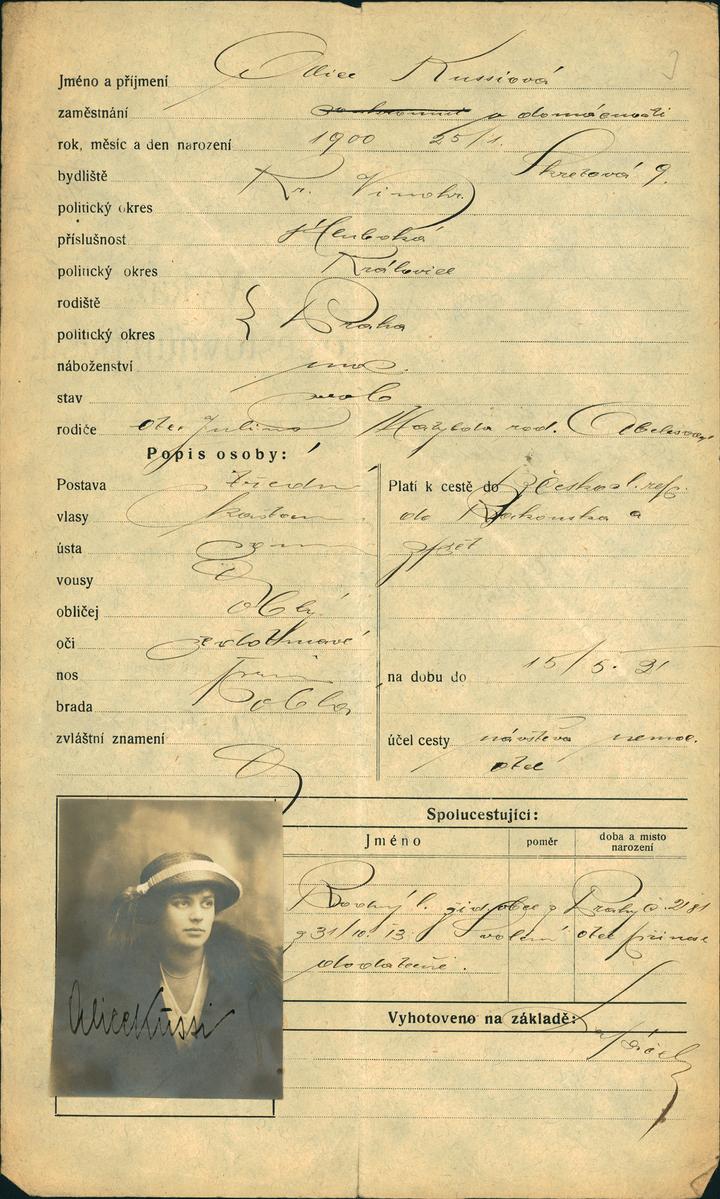 Jméno a příjmení Alice Kussiová
zaměstnání v domácnosti
rok, měsíc a den narození 1900 25/1.
bydliště Kr. Vinohr. Skretová 9.
politický okres
příslušnost Hluboká
politický okres Královice
rodiště Praha
politický okres
náboženství
stav
rodiče otec Julius Matylda roz. Abelesová
Popis osoby:
Postava střední
vlasy kaštan
ústa
vousy
obličej oblý
oči
nos
brada oblá
zvláštní znamení
Platí k cestě do Českosl. rep.
do Rakouska a
zpět
na dobu do 15/5. 21
účel cesty návštěva nemoc.
otce
Alice Kussi
Spolucestující:
Jméno poměr doba a místo narození
Rodný l. žid. obce z Prahy č. 281
z 31/10. 13. Svolení otce přinese
dodatečně.
Vyhotoveno na základě: